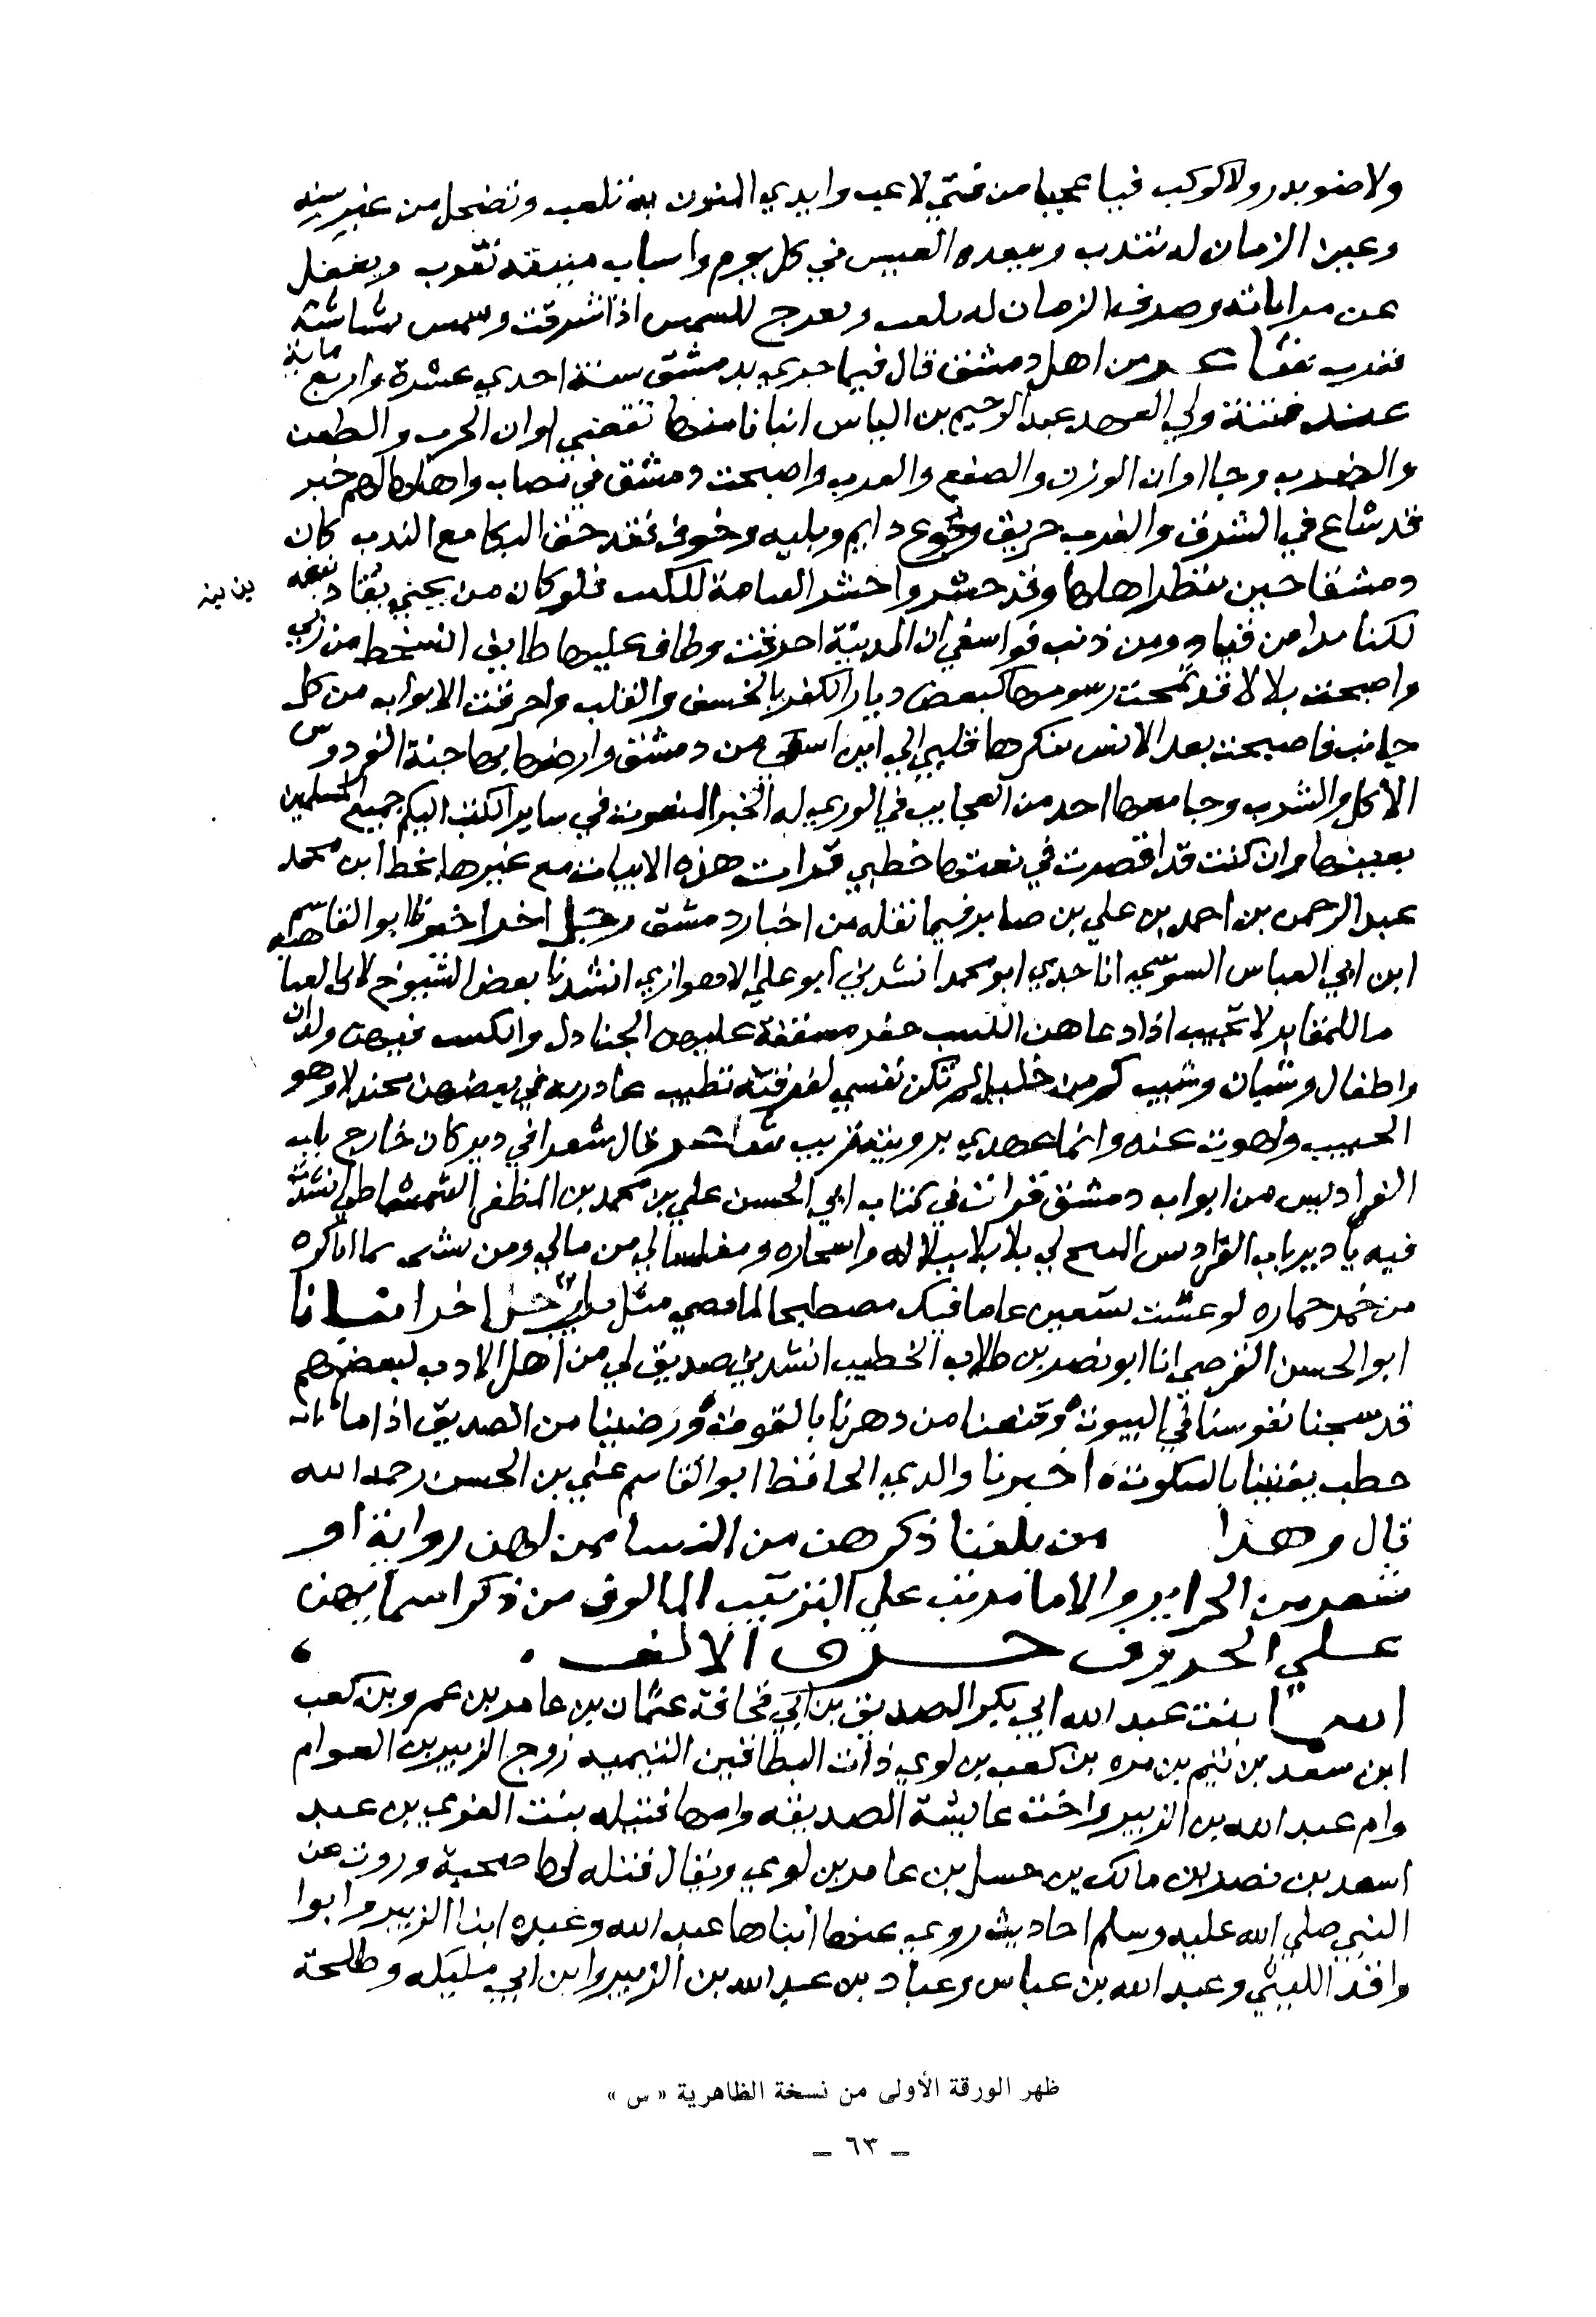 ولا ضو بدر ولا كوكب فيا عجبا من فتي لاعب وايدي المنون به تلعب وتضحك من غير سنه
وعين الزمان له تندب ويعده العيس في كل يوم واسباب منيته تقرب ويغفل
عن مداياته وصدف الزمان له يلعب ويعرج للسمس اذا شرقت وسمس
تغرب شاعر من اهل دمشق قال فيما جري بدمشق سنة احدي عشرة واربع ماية
عند فتنة ولي العهد عبد الرحيم بن الياس تقضي اوان الحرب والطعن
والضرب وجا اوان الوزن والصفع والضرب واصبحت دمشق في مصاب واهلها لهم خبر
قد شاع في الشرق والغرب حريق وجوع دايم وبليه وخوف فقد حق البكا مع الندب كان
دمشقا حين تنظر اهلها وقد حشروا حشر القيامة للكتب فلو كان من يجني يقاد
لكنا ومن ذنب فوا اسفي ان المدينة احرقت وطاف عليها طايف السخط من ربي
واصبحت تلالا قد تمحت رسومها كبعض ديار الكفر بالخسف والقلب واحرقت الابواب من كل
جانب فاصبحت بعد الانس تنكرها قلبي الي اين من دمشق وارضها بها جنة الفردوس
الاكل والشرب وجامعها احد من العجايب في الوري له الخبر المنعوت في ساير الكتب اليكم جميع المسلمين
وان كنت قد اقصرت في نعتها خطبي قرات هذه الابيات مع غيرها بخط ابن محمد
عبد الرحمن بن احمد بن علي بن صابر فيما نقله من اخبار دمشق رجل اخر اخبرنا ابو القاسم هبه
ابن ابي العباس السوسي انا جدي ابو محمد انشدني ابو علي الاهوازي انشدنا بعض الشيوخ
ما للمقابر لا تجيب اذا دعاهن الكئيب حفر مسقفة عليهن الجنادل والكتب فيهن ولدان
واطفال وشبان وشيب كم من خليل لم تكن نفسي لفرقته تطيب غادرته في بعضهن مجندلا وهو
الحبيب ولهوت عنه وانما عهدي برويته قريب شاعر قال شعرا في دير كان خارج باب
الفراديس من ابواب دمشق قرات في كتاب ابي الحسن علي بن محمد بن المظفر الشمشاطي انشدت
فيه يا دير باب الفراديس المهيج لي واسحاره
من خمر خماره لو عشت تسعين عاما فيك مصطبحا لما قضي رجل اخر انبانا
ابو الحسن الفرضي انا ابو نصر بن طلاب الخطيب انشدني صديق لي من اهل الادب لبعضهم
قد سجنا نفوسنا في البيوت وقنعنا من دهرنا بالقوت ورضينا من الصديق اذا ما ناب
خطب يفتينا بالسكوت اخبرنا والدي الحافظ ابو القاسم علي بن الحسن رحمه الله
قال وهذا من بلغنا ذكرهن من النسا ممن لهن رواية او
شعر من الحراير والاما مرتب علي الترتيب المالوف من ذكر اسمايهن
علي الحروف حرف الالف
اسما ابنت عبد الله ابي بكر الصديق بن ابي قحافة عثمان بن عامر بن عمرو بن كعب
ابن سعد بن تيم بن مره بن كعب بن لوي ذات النطاقين التيميه زوج الزبير بن العوام
وام عبد الله بن الزبير واخت عايشة الصديقه وامها قتيله بنت العزي بن عبد
اسعد بن نصر بن مالك بن حسل بن عامر بن لوي ويقال قتله لها صحبة وروت عن
النبي صلي الله عليه وسلم احاديث روي عنها ابناها عبد الله وعروه ابنا الزبير وابوا
واقد الليثي وعبد الله بن عباس وعباد بن عبد الله بن الزبير وابن ابي مليكه وطلحة
ظهر الورقة الأولى من نسخة الظاهرية « س »
– ٦٣ –